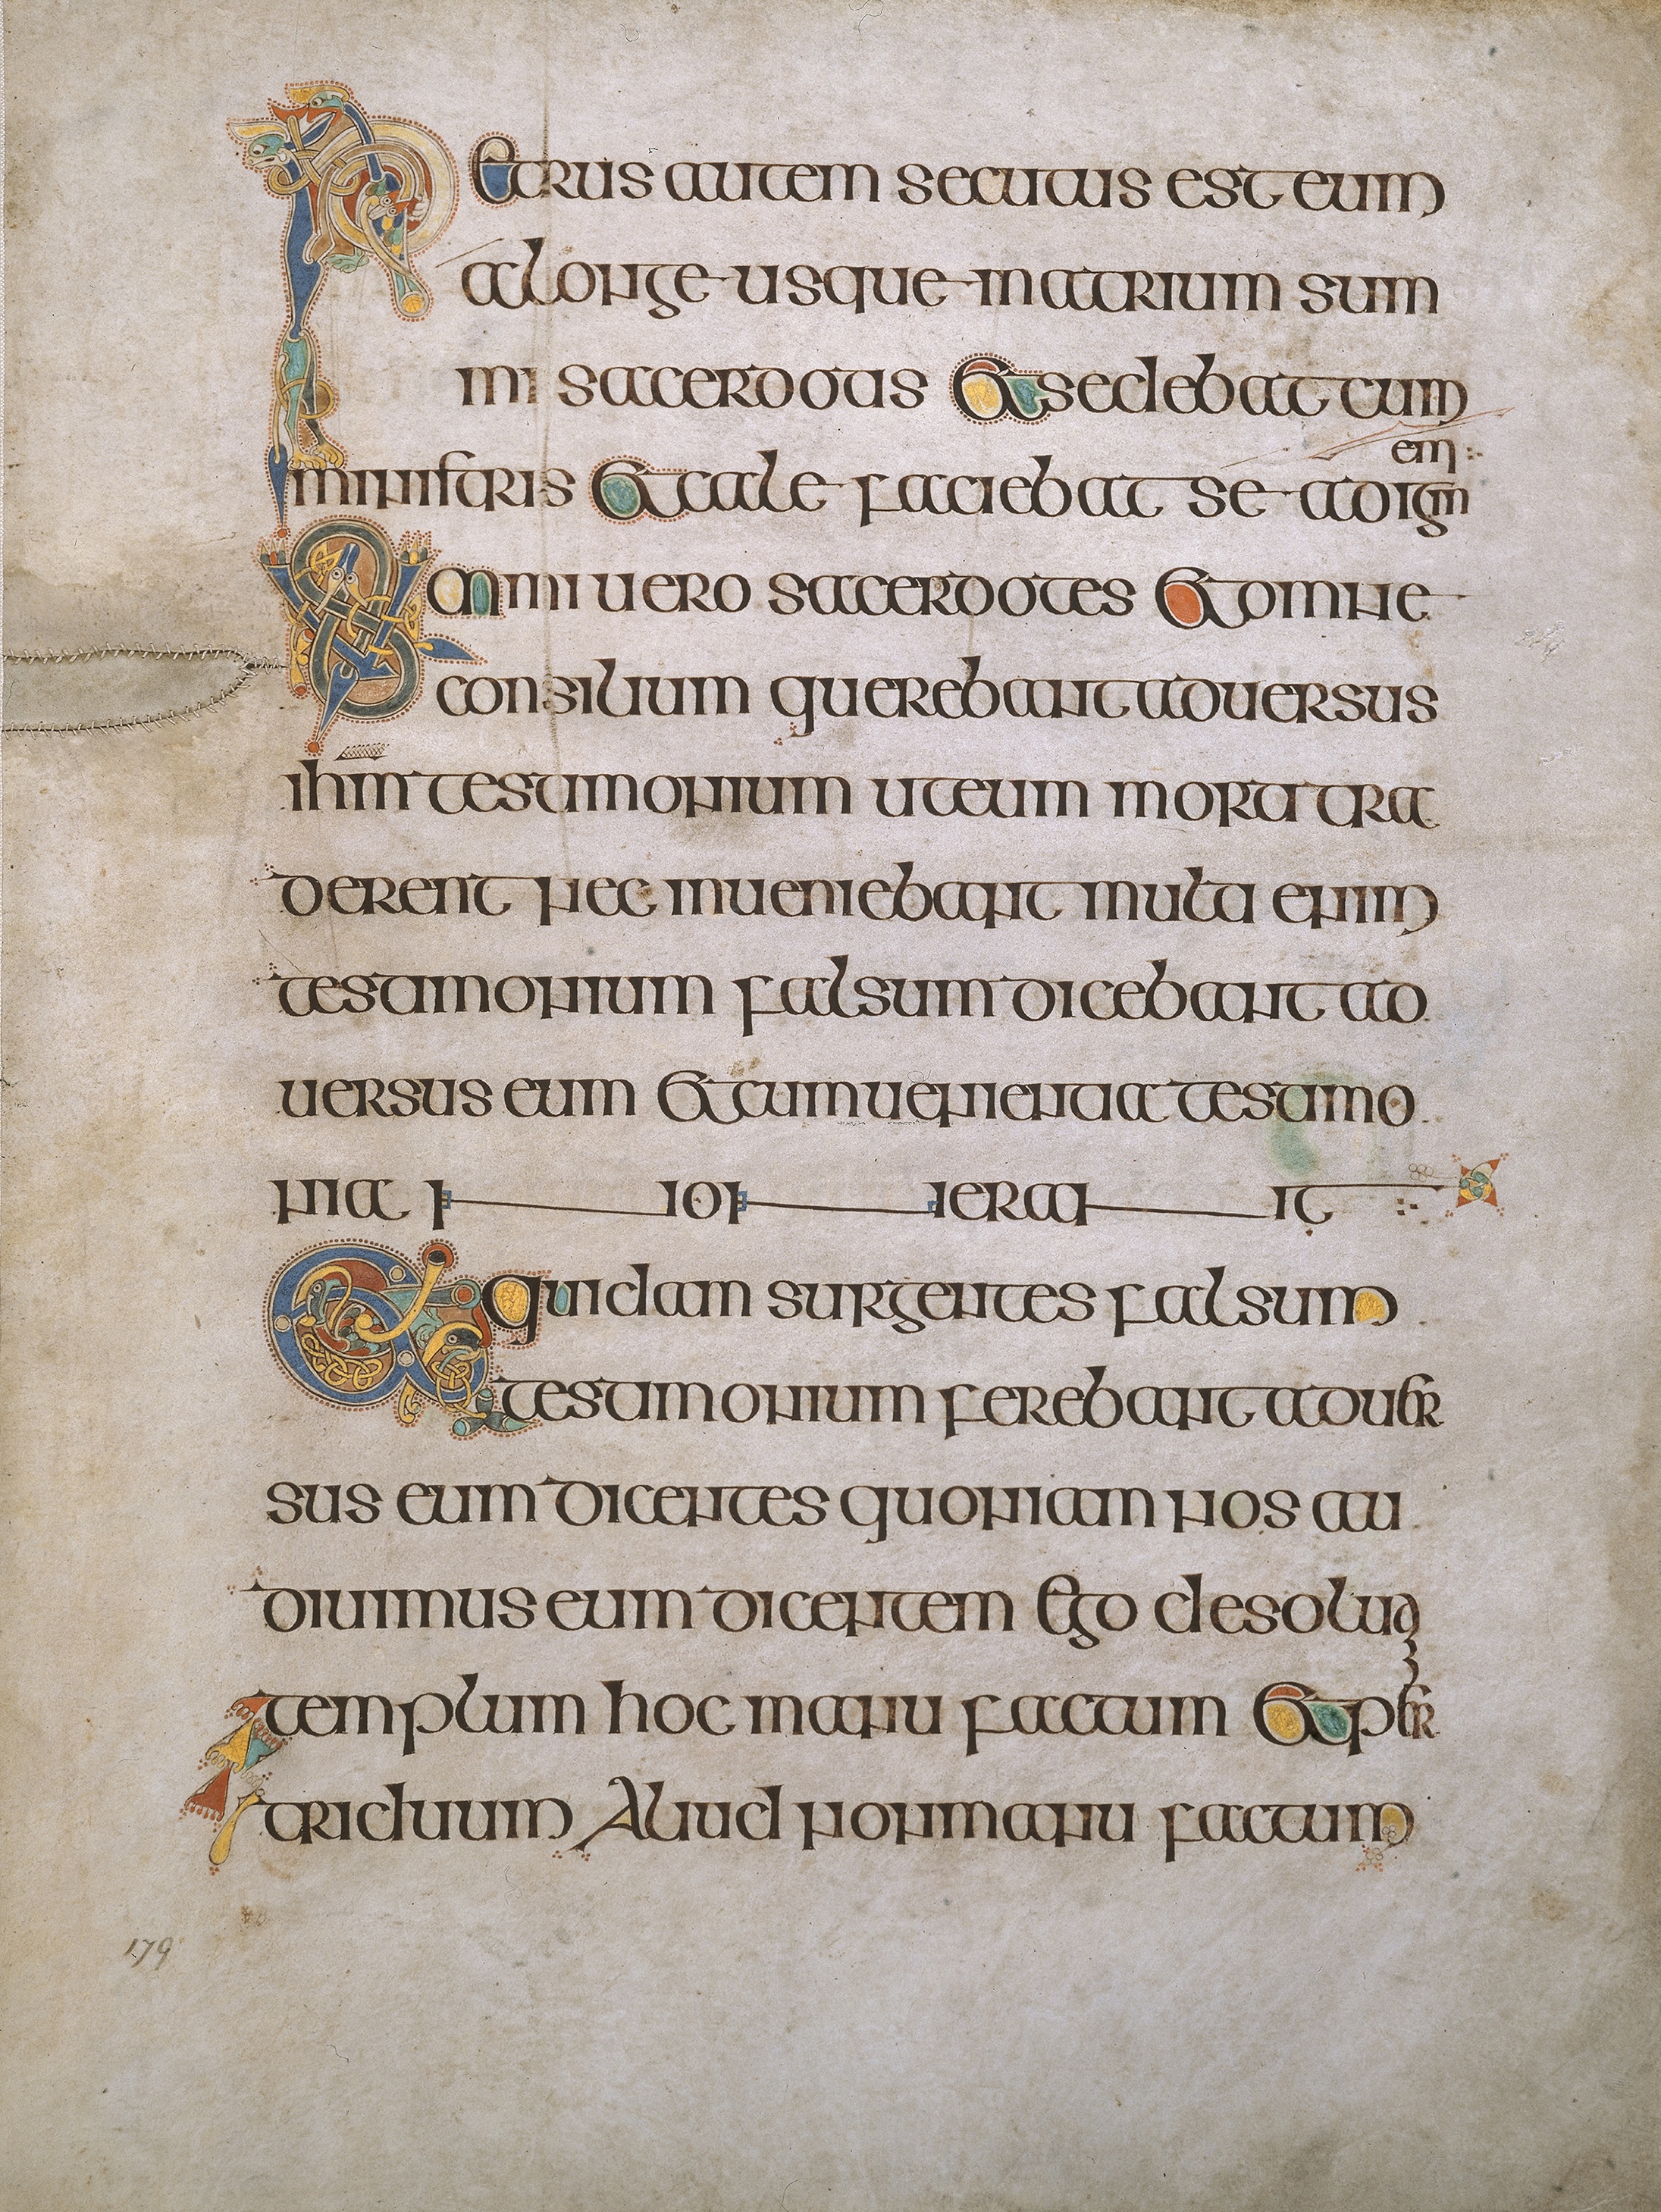 Petrus autem secutus est eum
alonge usque in atrium sum
mi sacerdotis Et sedebat cum
ministris Et cale faciebat se ad ignem
Summi uero sacerdotes Et omne
consilium querebant aduersus
ihm testimonium ut eum morti tra
derent nec inueniebant multi enim
testimonium falsum dicebant ad
uersus eum Et cumuenientia testimo
nia non erant
Et quidam surgentes falsum
testimonium ferebant aduer
sus eum dicentes quoniam nos au
diuimus eum dicentem Ego desoluam
templum hoc manu factum Et per
triduum Aliud non manu factum
179